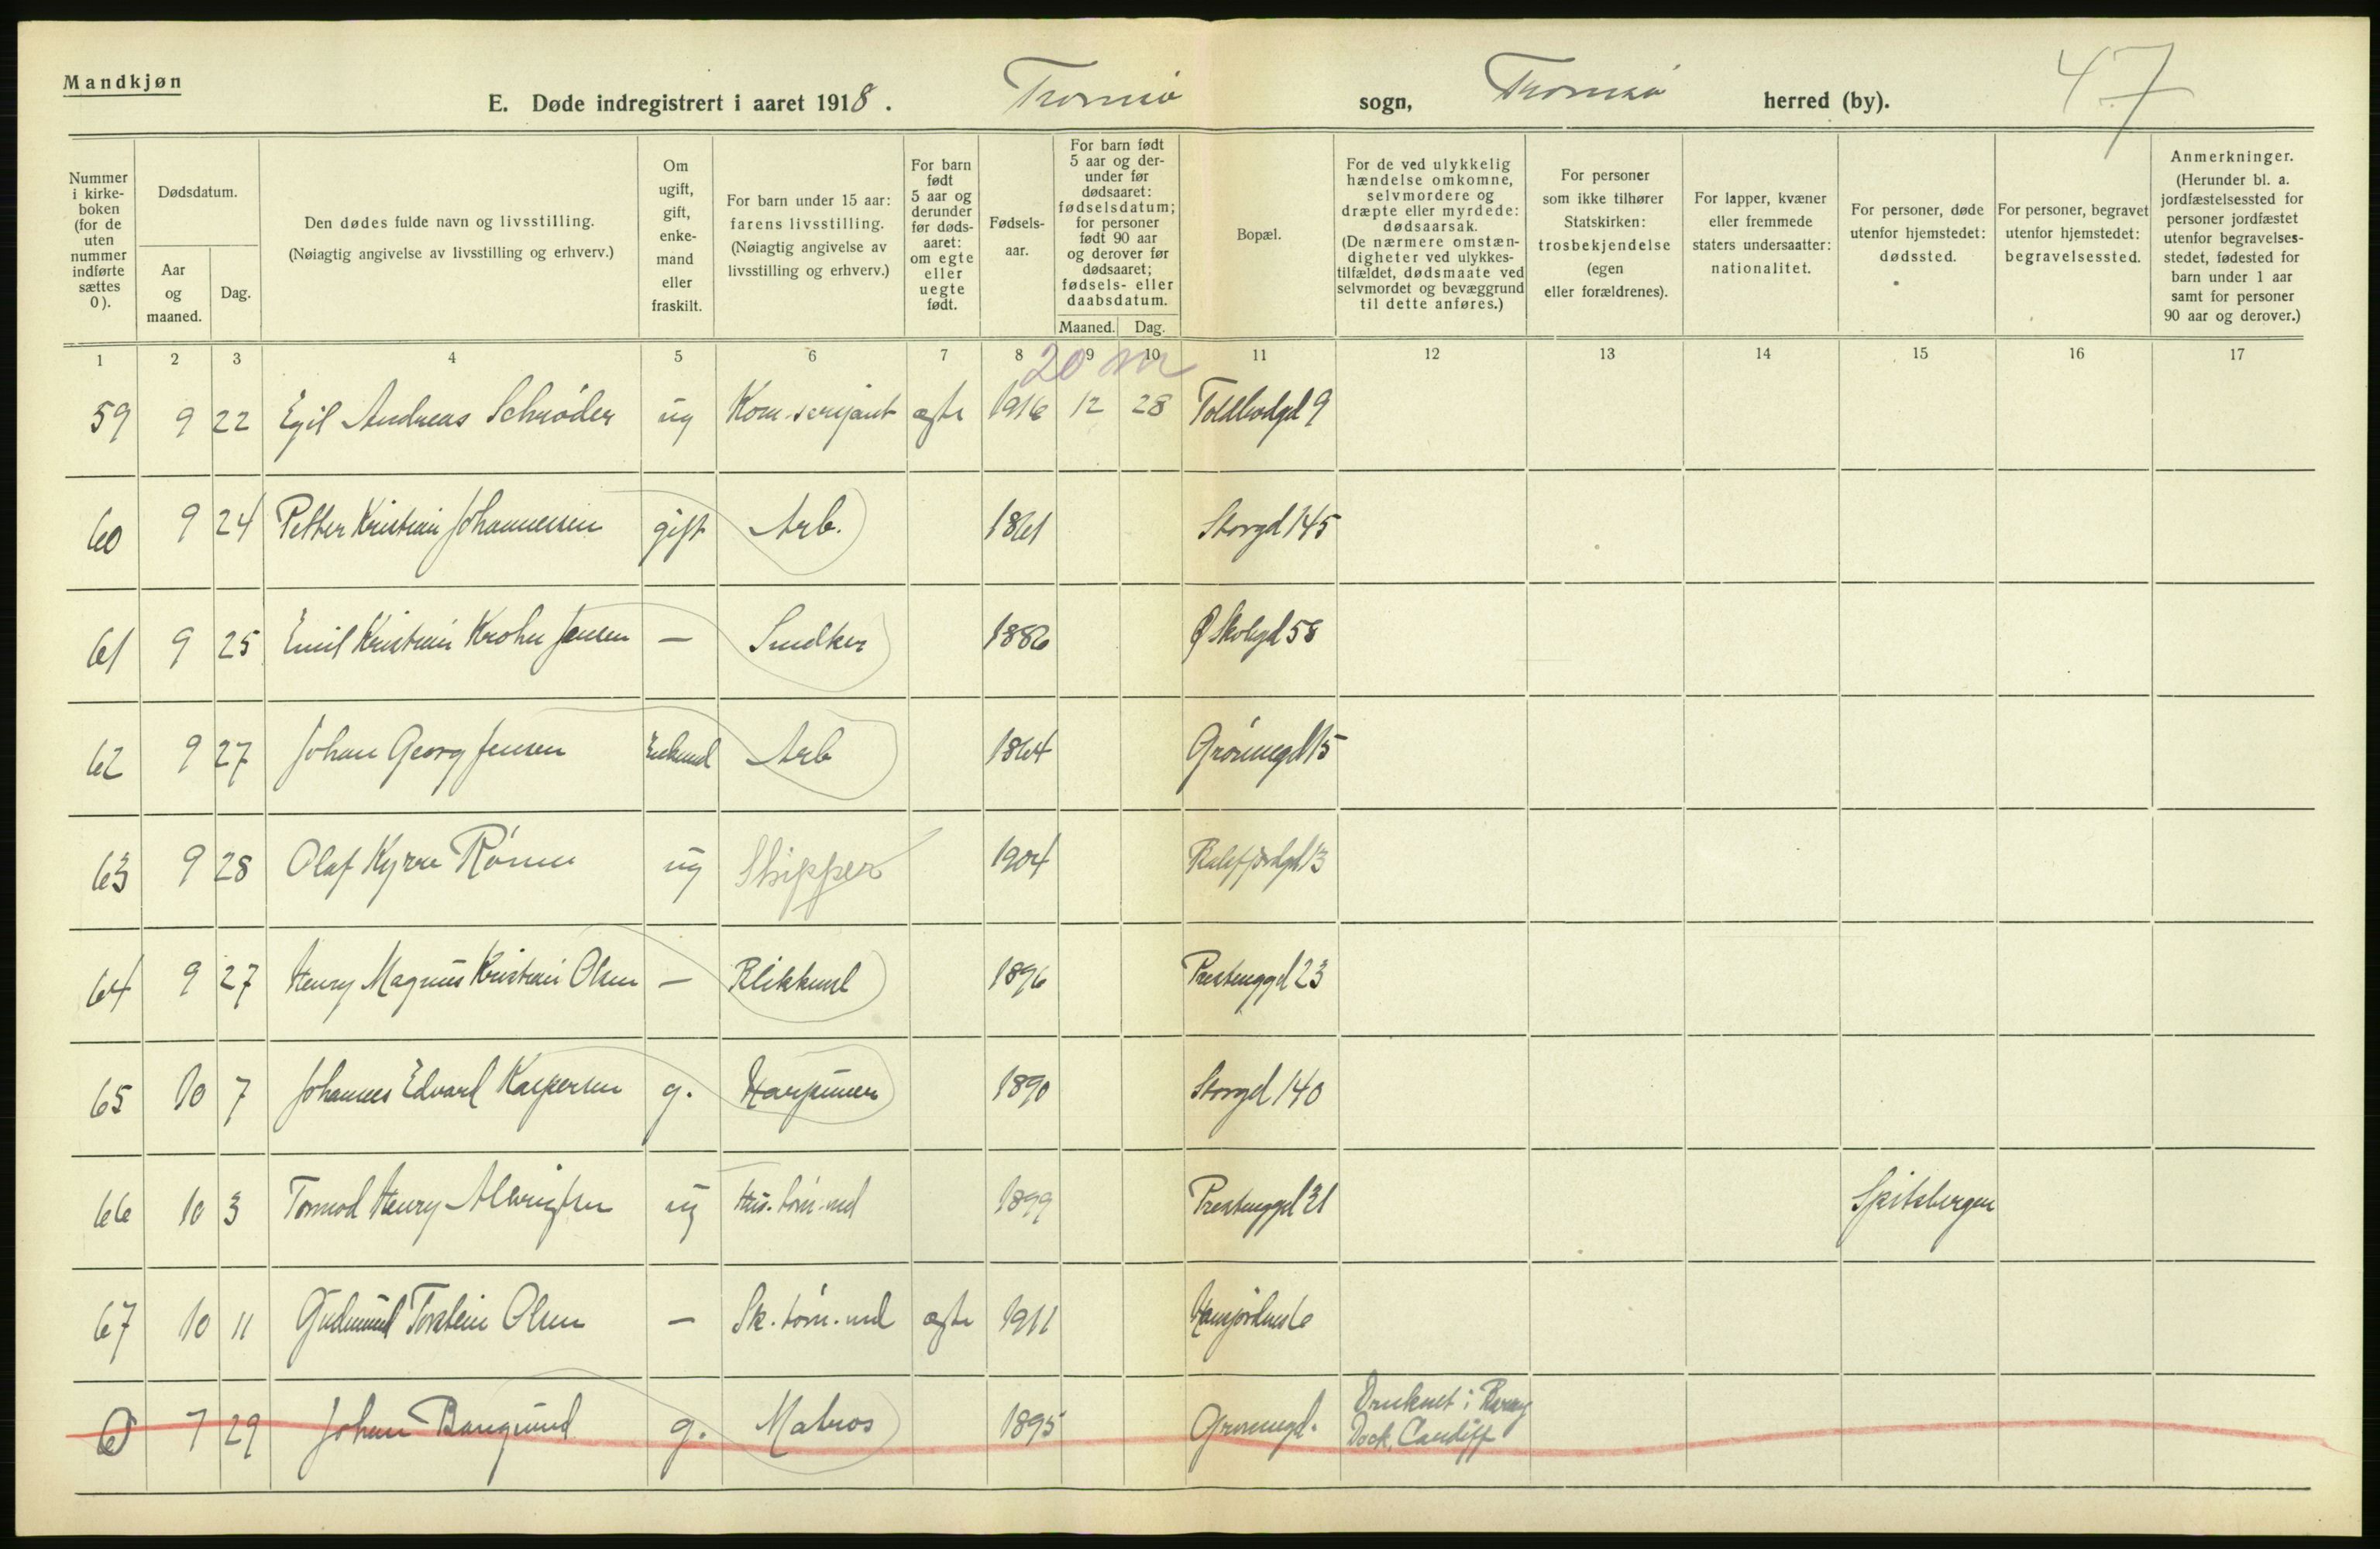 Mandkjøn
E. Døde indregistrert i aaret 1918. Tromsø sogn, Tromsø herred (by). 47
Nummer i kirke-boken (for de uten nummer indførte sættes 0).
Dødsdatum.
Aar og maaned.
Dag.
Den dødes fulde navn og livsstilling.
(Nøiagtig angivelse av livsstilling og erhverv.)
Om ugift, gift, enke-mand eller fraskilt.
For barn under 15 aar: farens livsstilling.
(Nøiagtig angivelse av livsstilling og erhverv.)
For barn født 5 aar og derunder før døds-aaret: om egte eller uegte født.
Fødsels-aar.
For barn født 5 aar og der-under før dødsaaret: fødselsdatum; for personer født 90 aar og derover før dødsaaret; fødsels- eller daabsdatum.
Maaned. Dag.
Bopæl.
For de ved ulykkelig hændelse omkomne, selvmordere og dræpte eller myrdede: dødsaarsak.
(De nærmere omstæn-digheter ved ulykkes-tilfældet, dødsmaate ved selvmordet og bevæggrund til dette anføres.)
For personer som ikke tilhører Statskirken: trosbekjendelse (egen eller forældrenes).
For lapper, kvæner eller fremmede staters undersaatter: nationalitet.
For personer, døde utenfor hjemstedet: dødssted.
For personer, begravet utenfor hjemstedet: begravelsessted.
Anmerkninger.
(Herunder bl. a. jordfæstelsessted for personer jordfæstet utenfor begravelses-stedet, fødested for barn under 1 aar samt for personer 90 aar og derover.)
1 2 3 4 5 6 7 8 9 10 11 12 13 14 15 16 17
20 m
59 9 22 Egil Andreas Schrøder ug Kom.serjant egte 1916 12 28 Toldbodgd 9
60 9 24 Petter Kristian Johannessen gift Arb. 1861 Storgd 145
61 9 25 Emil Kristian Krohn Jensen — Snedker 1886 Ø Skolegd 58
62 9 27 Johan Georg Jensen Enkemd Arb 1864 Grønnegd 15
63 9 28 Olaf Kyrre Rønne ug Skipper 1904 Balsfjordgd 13
64 9 27 Henry Magnus Kristian Olsen — Blikkensl 1896 Prestenggd 23
65 10 7 Johannes Edvard Kaspersen g. Harpuner 1890 Storgd 140
66 10 3 Tormod Henry Albrigtsen ug Hus.tøm.md 1899 Prestenggd 21 Spitsbergen
67 10 11 Gudmund Torstein Olsen — Sk.tøm.md egte 1911 Hansjordnes 6
0 7 29 Johan g. Matros 1895 Grønnegd. Druknet i
Dock, Cardiff